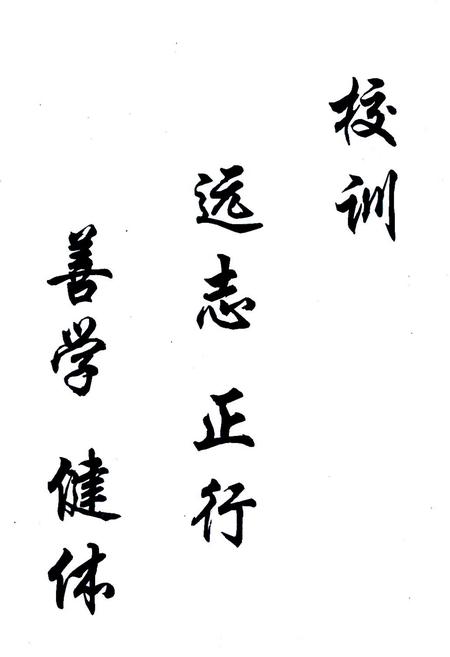 校训
远志 正行
善学 健体